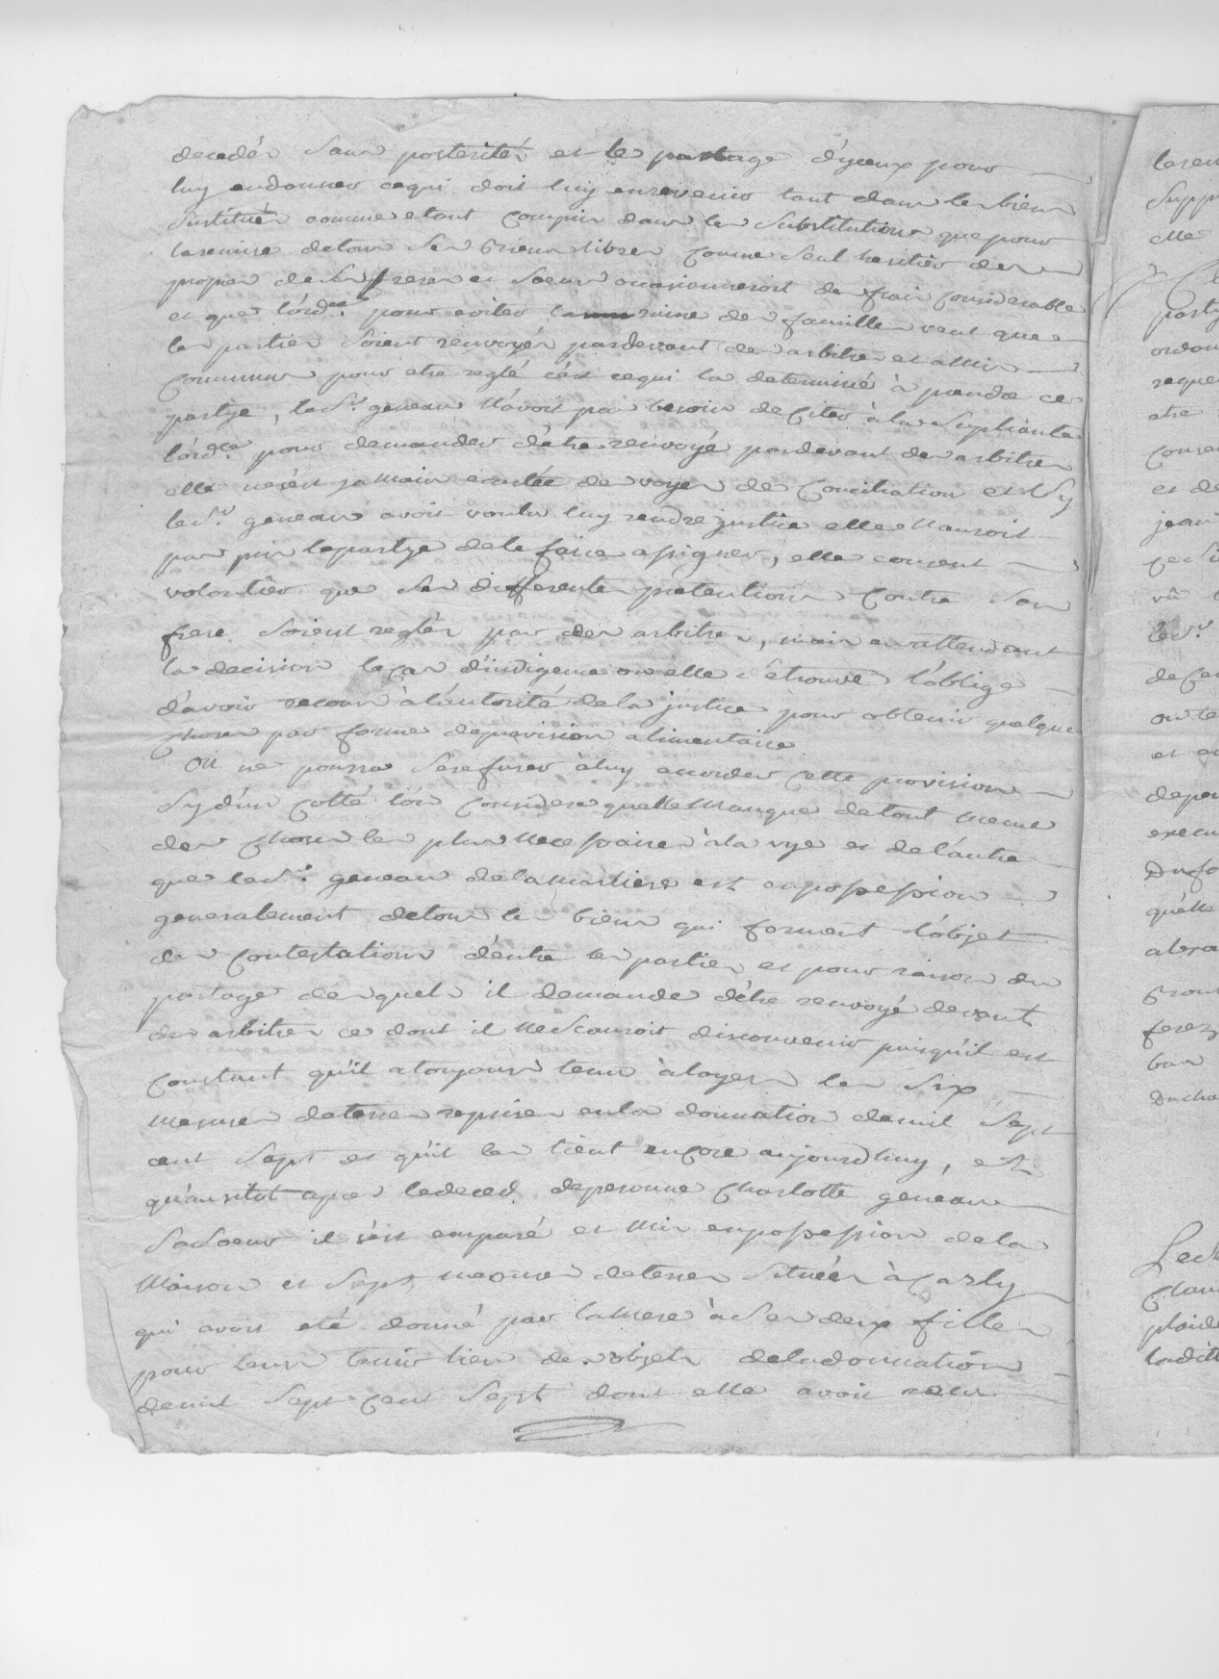 decedés sans posterité et le partage d'yceux pour
luy en donner ce qui doit luy en revenir tant dans les biens
Substitués comme etant compris dans les Substitutions que pour
la remise de tous ses biens libres comme seul heritier des
propres de ses freres et soeurs occasionneroit des frais considerables
et que l'ord.ce pour eviter la ruine des familles veut que
les parties soient renvoyés pardevant des arbitres et amis
communs pour etre reglé c'est ce qui l'a determiné à prendre ce
partye, led. Sr. geneau n'avoit pas besoin de citer à la Supliante
l'ord.ce pour demander d'etre renvoyé pardevant des arbitres
elle ne s'est jamais ecartée des voyes de conciliation et sy
led. Sr. geneau avoit voulu luy rendre justice elle n'auroit
pas pris le partye de le faire assigner, elle consent
volontier que ses differentes pretentions contre son
frere soient reglés par des arbitres, mais en attendant
la decision le cas d'indigence ou elle se trouve l'oblige
d'avoir recour à l'autorité de la justice pour obtenir quelque
chose par forme de provision alimentaire
On ne pourra se refuser à luy accorder cette provision
Sy d'un cotté l'on considere quelle manque de tout meme
des choses les plus necessaires à la vye et de l'autre
que led. Sr. geneau de la martiere est en possession
generalement de tous les biens qui forment l'objet
des contestations d'entre les parties et pour raison du
partage desquels il demande d'etre renvoyé devant
des arbitres ce dont il ne scauroit disconvenir puisqu'il est
constant qu'il a toujours tenu à loyer les six
mesures de terres reprises en la donnation de mil sept
cent sept et qu'il les tient encore aujourd'huy, et
qu'aussitot apres le deced. de peronne charlotte geneau
sa soeur il s'est emparé et mis en possession de la
maison et sept mesures de terres situées à Carly
qui avoit eté donné par la mere à ses deux filles
pour leurs tenir lieu des objets de la donnation
de mil sept cent sept dont elle avoit recu